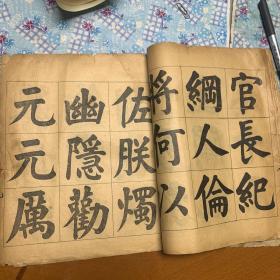 官長紀
綱人倫
將何以
佐朕燭
幽隱勸
元元厲